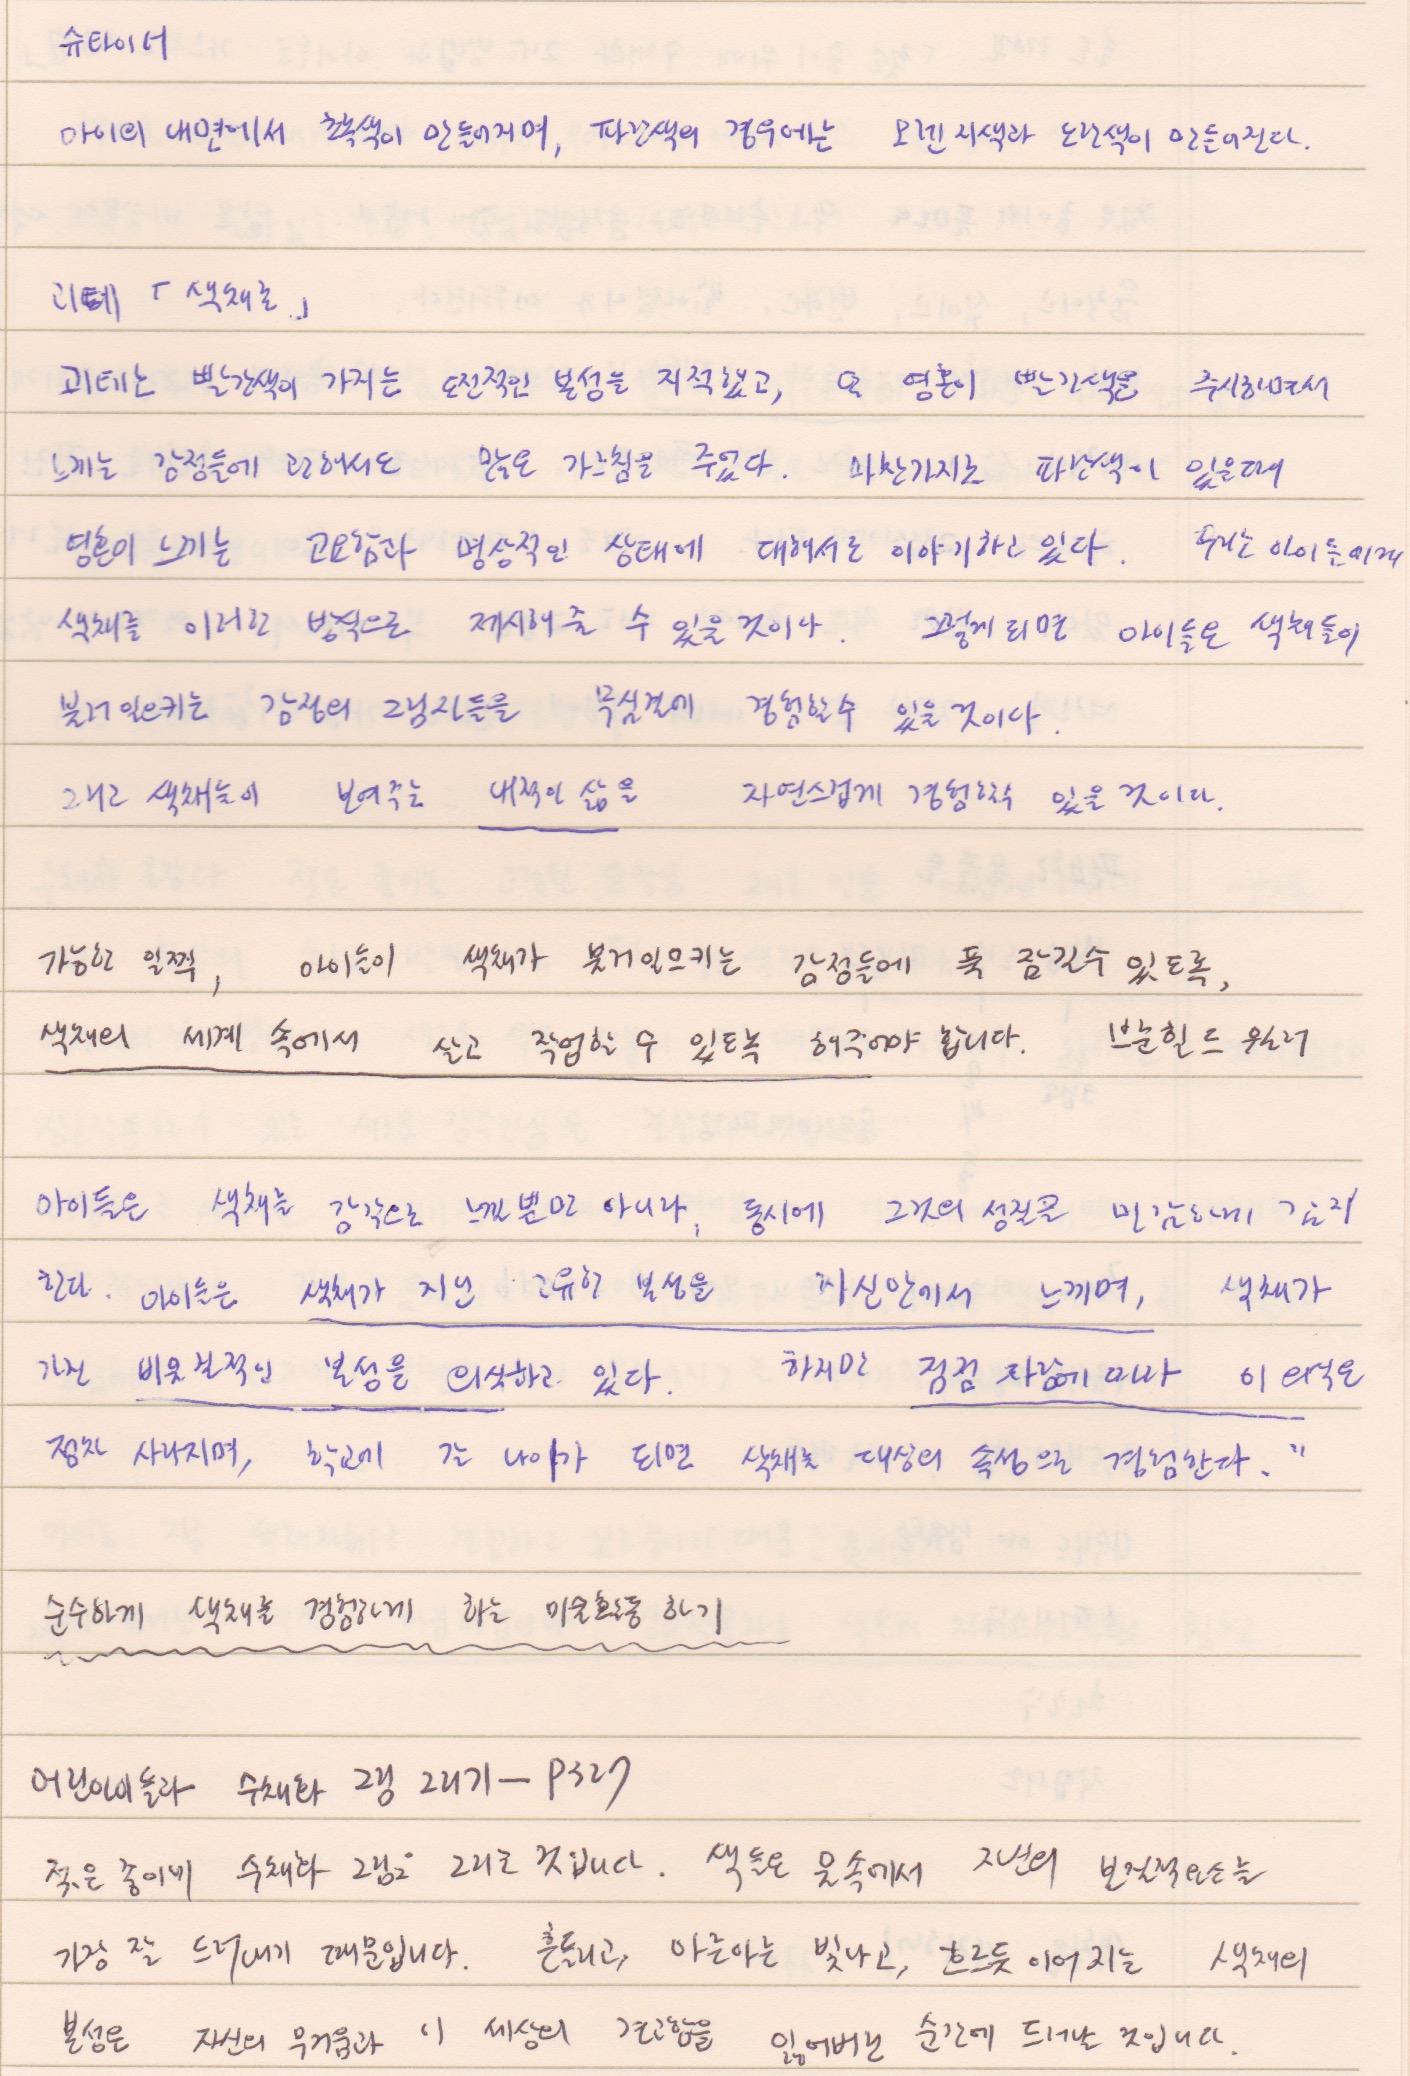 슈타이너
아이의 내면에서 초록색이 만들어지며, 파란색의 경우에는 오렌지색과 노란색이 만들어진다.
괴테 「색채론」
괴테는 빨간색이 가지는 도전적인 본성을 지적했고, 또 영혼이 빨간색을 주시하면서
느끼는 감정들에 관해서도 많은 가르침을 주었다. 마찬가지로 파란색이 있을때
영혼이 느끼는 고요함과 명상적인 상태에 대해서도 이야기하고 있다. 우리는 아이들에게
색채를 이러한 방식으로 제시해 줄 수 있을 것이다. 그렇게 되면 아이들은 색채들이
불러 일으키는 감정의 그림자들을 무심결에 경험할수 있을 것이다.
그리고 색채들이 보여주는 내적인 삶을 자연스럽게 경험할수 있을 것이다.
가능한 일찍, 아이들이 색채가 불러일으키는 감정들에 푹 잠길수 있도록,
색채의 세계 속에서 살고 작업할 수 있도록 해주어야 합니다. 브룬힐드 뮐러
아이들은 색채를 감각으로 느낄뿐만 아니라, 동시에 그것의 성질을 민감하게 감지
한다. 아이들은 색채가 지닌 고유한 본성을 자신안에서 느끼며, 색채가
가진 비물질적인 본성을 의식하고 있다. 하지만 점점 자람에 따라 이 의식은
점차 사라지며, 학교에 갈 나이가 되면 색채를 대상의 속성으로 경험한다."
순수하게 색채를 경험하게 하는 미술활동 하기
어린아이들과 수채화 그림 그리기 — P327
젖은 종이에 수채화 그림을 그리는 것입니다. 색들은 물속에서 자신의 본질적요소를
가장 잘 드러내기 때문입니다. 흔들리고, 아른아른 빛나고, 흐르듯 이어지는 색채의
본성은 자신의 무거움과 이 세상의 견고함을 잃어버린 순간에 드러날 것입니다.